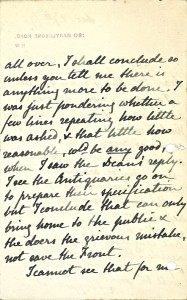 all over, I shall conclude so
unless you tell me there is
anything more to be done. I
was just pondering whether a
few lines repeating how little
was asked, & that little how
reasonable, wd be any good,
when I saw the Dean's reply.
I see the Antiquaries go on
to prepare their specification
but I conclude that can only
bring home to the public &
the doers the grievous mistake,
not save the Front.
I cannot see that for me